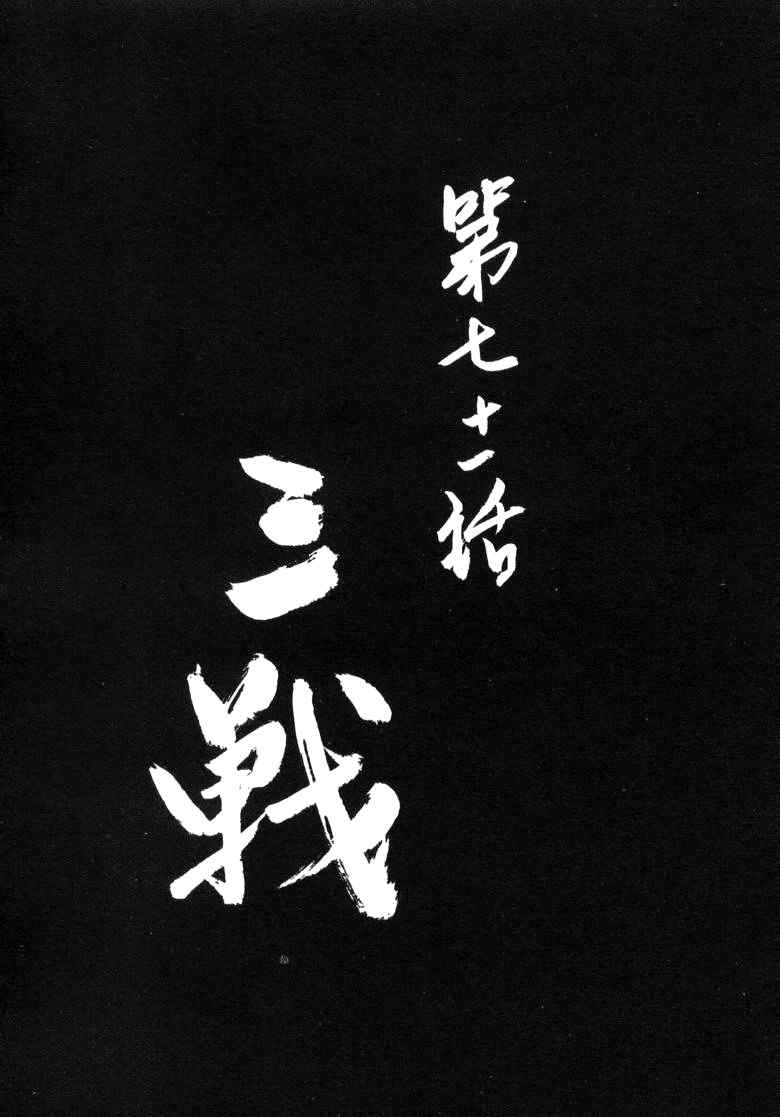 第七十一話
三戦